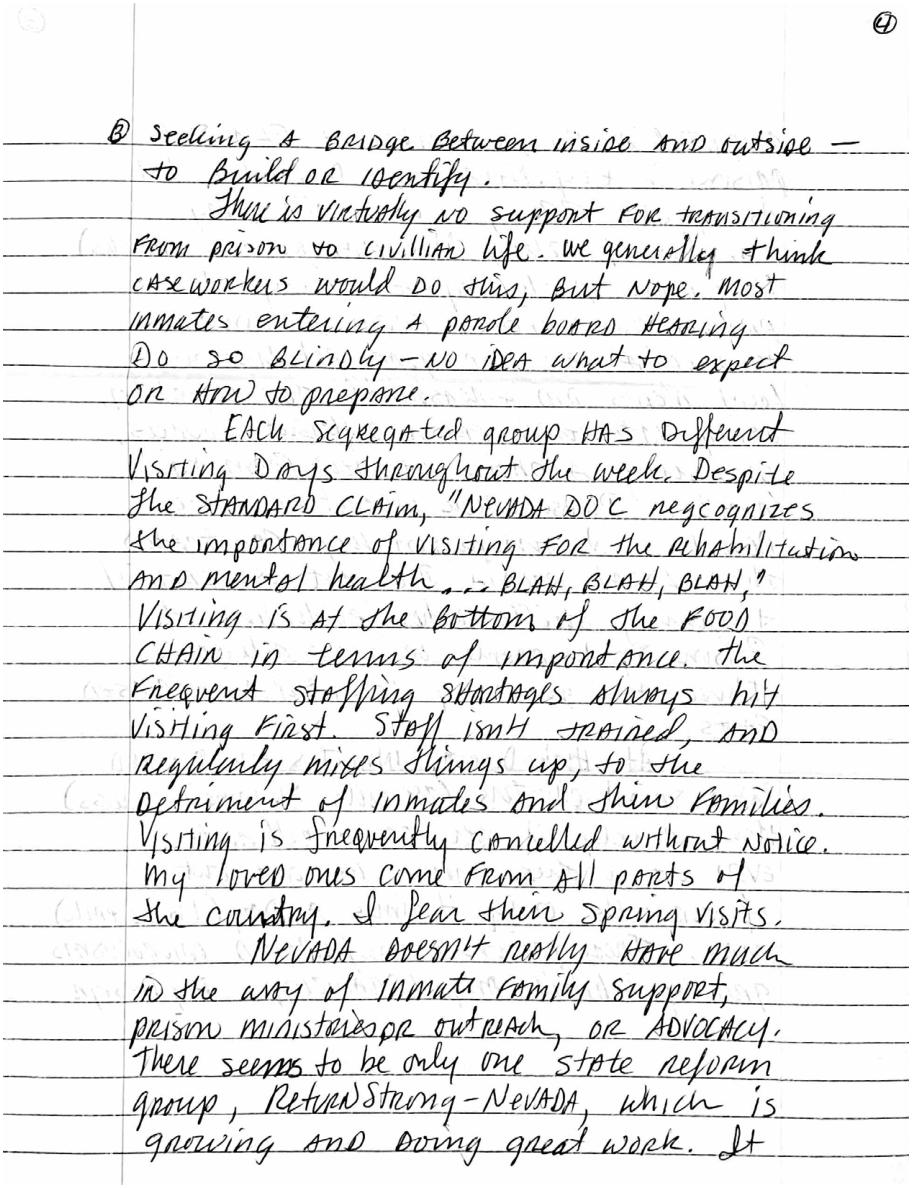 ④
③ Seeking A BRIDge Between inside AND outside —
to Build OR identify.
There is virtually NO support FOR transitioning
From prison to civillian life. We generally think
caseworkers would Do this, But Nope. Most
inmates entering A parole board HEARING
Do so Blindly – NO idea what to expect
OR How to prepare.
EACH segregated group HAS Different
Visiting Days throughout the week. Despite
the STANDARD CLAIM, "NEVADA DOC negcognizes
the importance of visiting FOR the Rehabilitution
AND mental health ... BLAH, BLAH, BLAH,"
Visiting is At the Bottom of the FOOD
CHAIN in terms of importance. the
Frequent staffing shortages always hit
visiting First. Staff isn't trained, AND
Regularly mixes things up, to the
Detriment of inmates And their Families.
Visiting is frequently cancelled without Notice.
my loved ones come From All parts of
the country. I fear their spring visits.
NEVADA Doesn't really HAVE much
in the way of inmate Family support,
prison ministries or outreach, OR ADVOCACY.
There seems to be only one state reform
group, Return Strong–NEVADA, which is
growing AND Doing great work. It